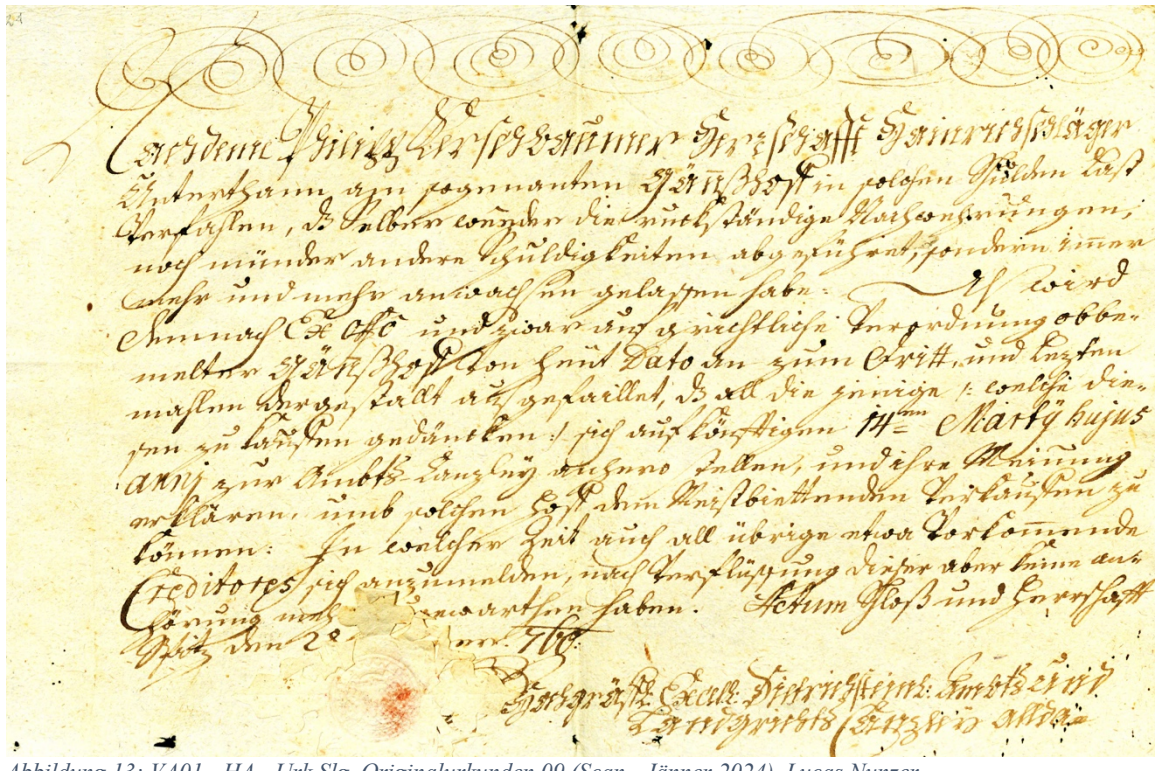 Nachdeme Philipp Kerschbaumer Herrschafft Hainrichschläger
Unterthann am sogenanten Gänßhoff in solchen Schulden Last
Verfahlen, dz Selber weeder die ruckständige Nachwehrungen,
noch münder andere Schuldigkeiten abgeführet, sondern immer
mehr und mehr anwachsen gelassen habe. Es wird
demnach Ex offo und zwar auf grichtliche Verordnung obbe-
melter Gänßhoff von heut Dato an zum Dritt, und lezten
mahlen dergestallt ausgefaillet, dz all die jenige /: welche die-
sen zu kauffen gedäncken :/ sich auf könfftigen 14ten Martÿ hujus
anni zur Ambts Canzley anhero stellen, und ihre Meinung
erklären, umb solchen Hoff dem Meistbiettenden Verkauffen zu
können: In welcher Zeit auch all übrige etwa Vorkommende
Creditores sich anzumelden, nach Verflüssung dieser aber keine an-
hörung meh gewarthen haben. Actum Schloß und Herrschafft
Spitz den 2 760.
Hochgräffl: Excell: Dietrichsteinl: Ambts und
Landgrichts Canzley allda
Abbildung 13: VA01 - HA - Urk Slg, Originalurkunden 09 (Scan - Jänner 2024), Lucas Nunzer